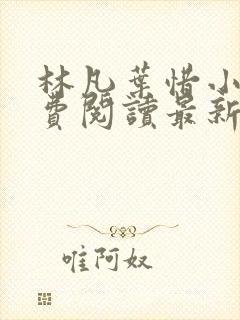 林凡葉惜小
費閱讀最新
唯阿奴